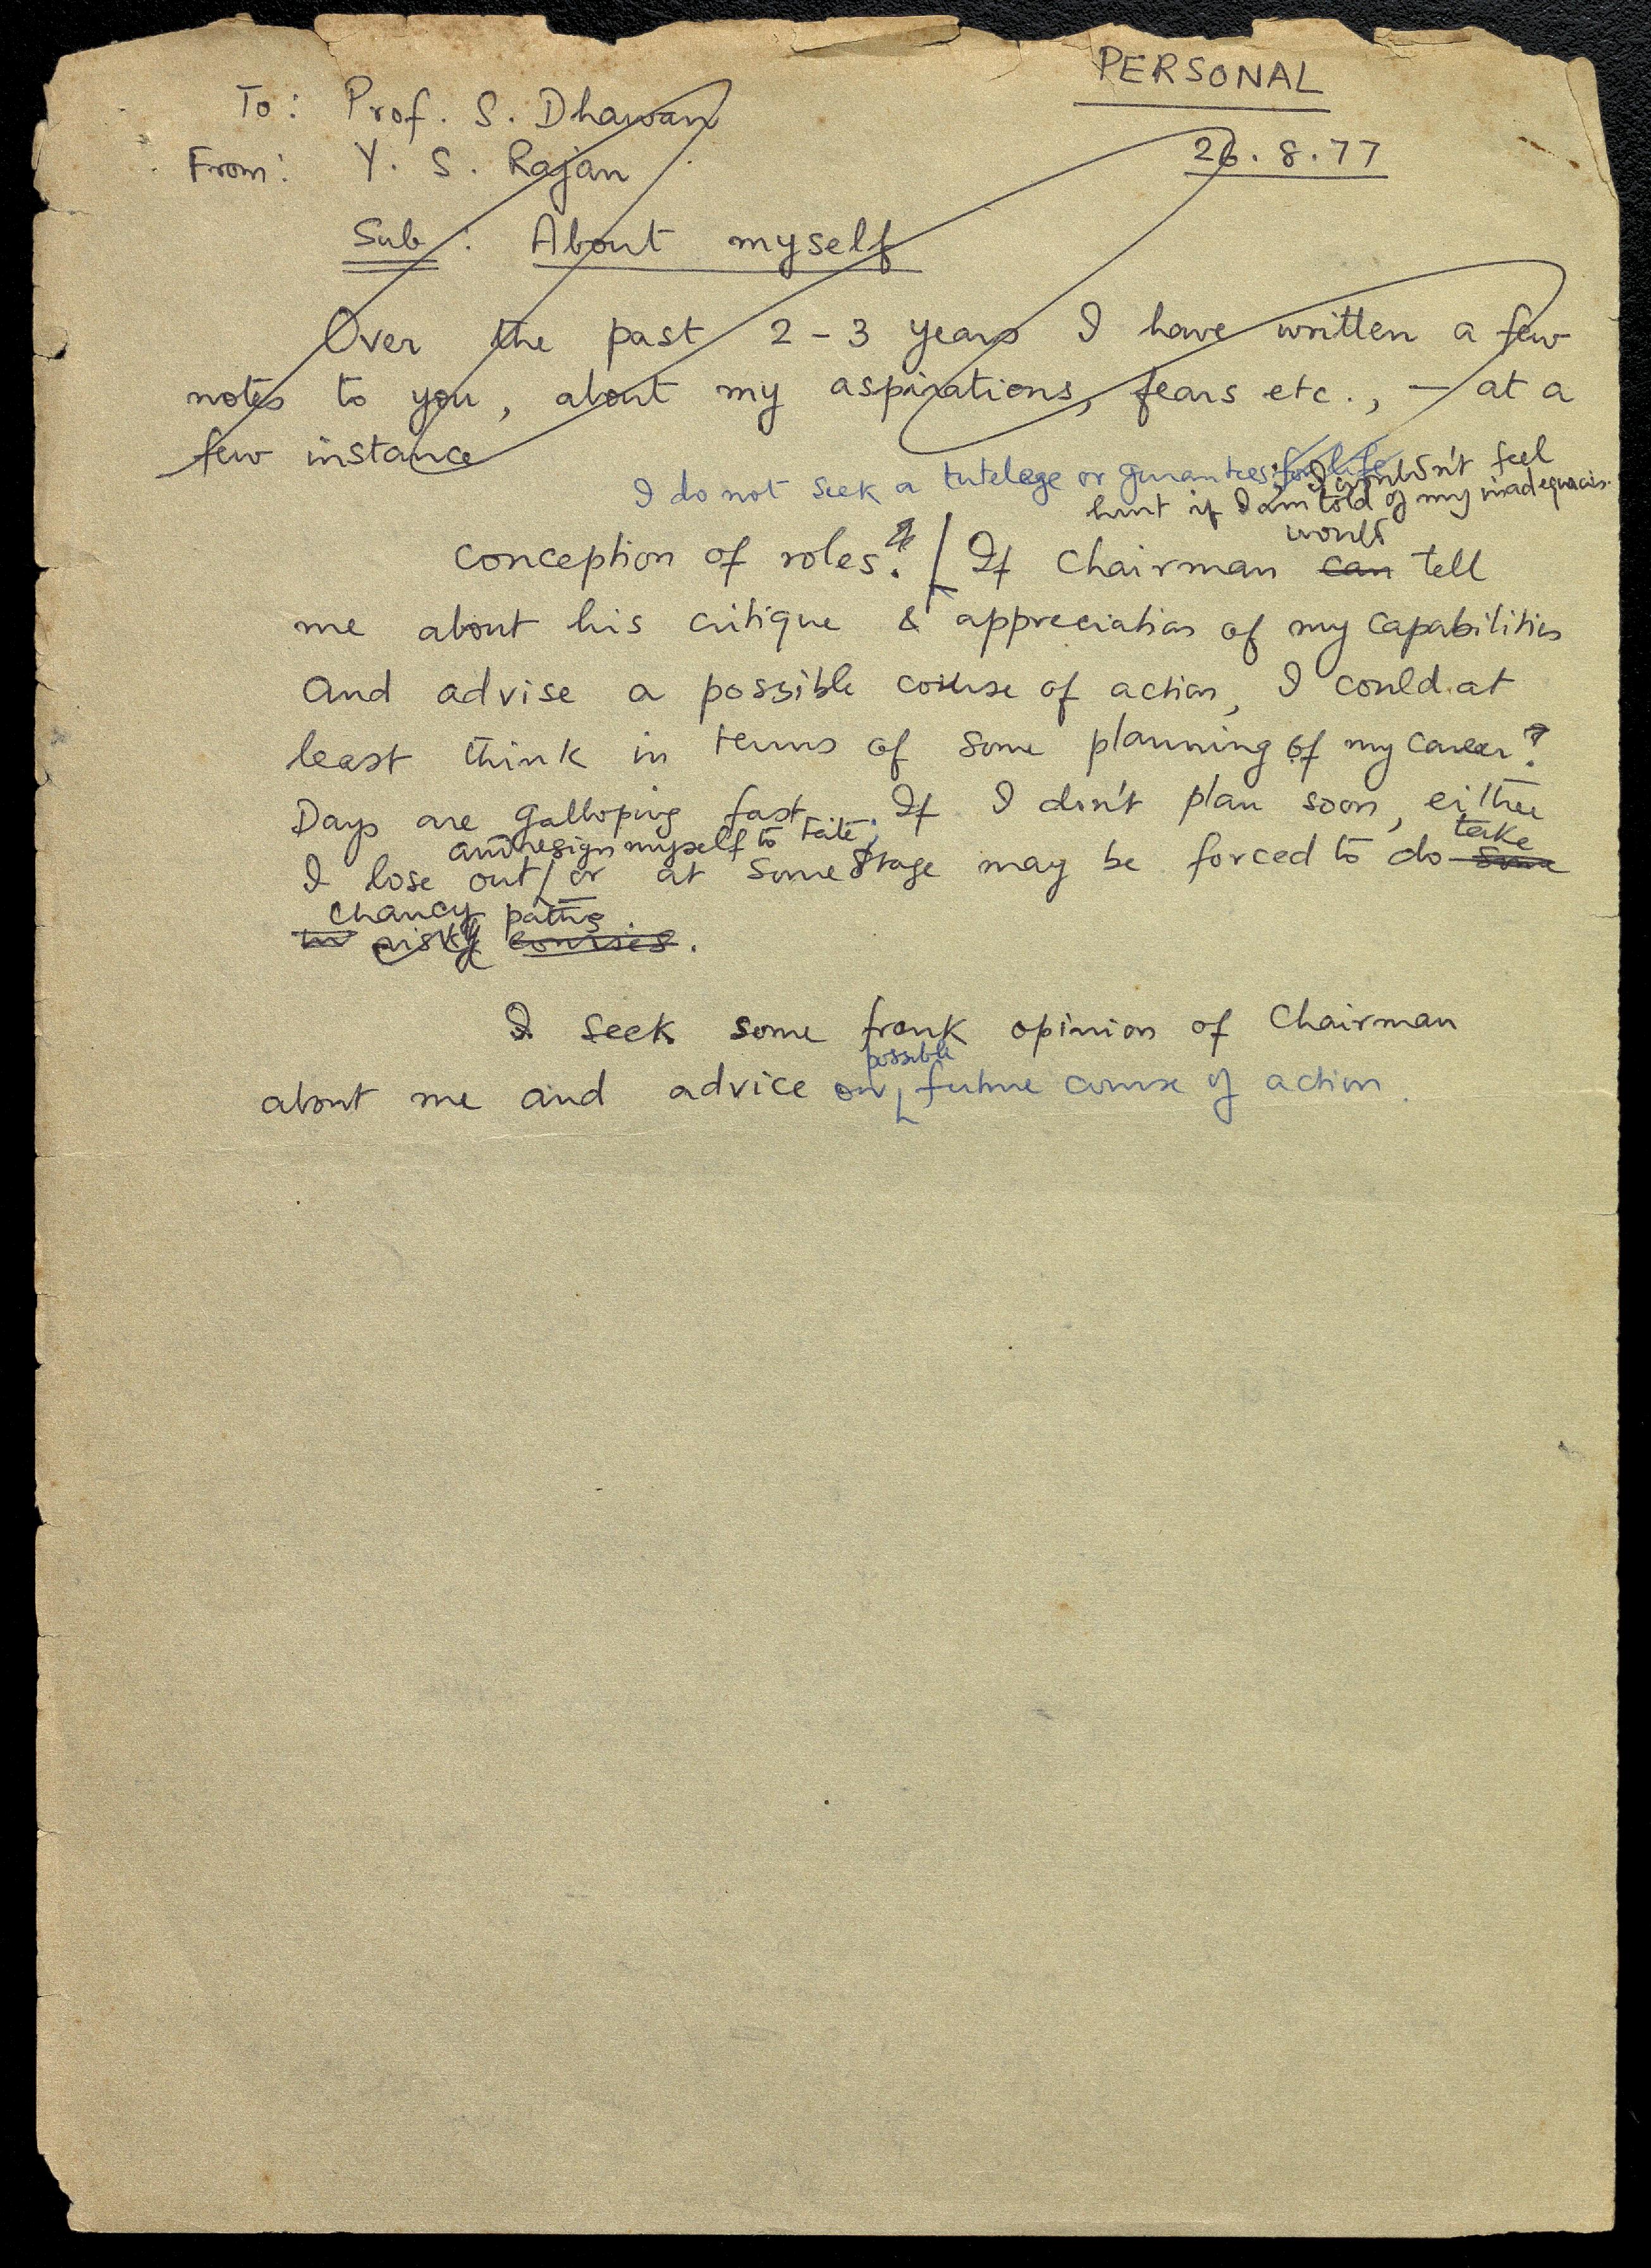 PERSONAL
To: Prof. S. Dhawan
26.8.77
From: Y. S. Rajan
Sub: About myself
Over the past 2-3 years I have written a few
notes to you, about my aspirations, fears etc., — at a
few instance
I do not seek a tutelage or gurantees for life; I wouldn't feel
hurt if I am told of my inadequacies.
would
conception of roles? If Chairman can tell
me about his critique & appreciation of my capabilities
and advise a possible course of action, I could at
least think in terms of some planning of my career?
Days are galloping fast. If I don't plan soon, either
and resign myself to fate, take
I lose out or at some stage may be forced to do some
chancy paths
risky courses.
I seek some frank opinion of Chairman
possible
about me and advice on future course of action.